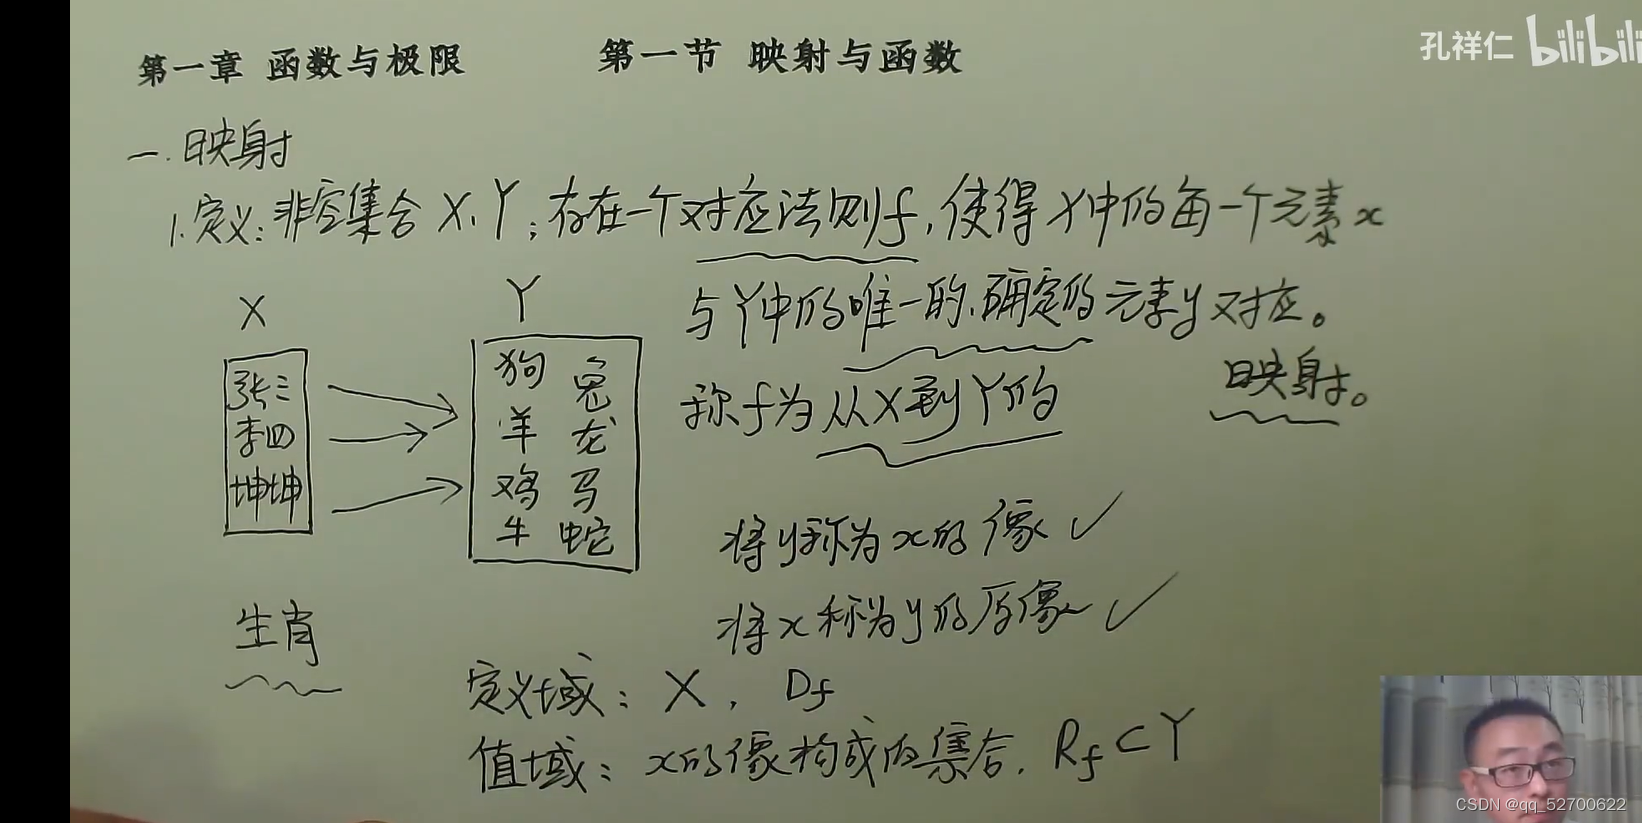 第一章 函数与极限 第一节 映射与函数
孔祥仁 bilibili
一.映射
1.定义:非空集合X、Y;存在一个对应法则f,使得X中的每一个元素x
与Y中的唯一的、确定的元素y对应。
称f为从X到Y的 映射。
X Y
张三
李四
坤坤
狗 兔
羊 龙
鸡 马
牛 蛇
将y称为x的像✓
将x称为y的原像✓
生肖
定义域:X,Df
值域:x的像构成的集合.Rf⊂Y
CSDN @qq_52700622